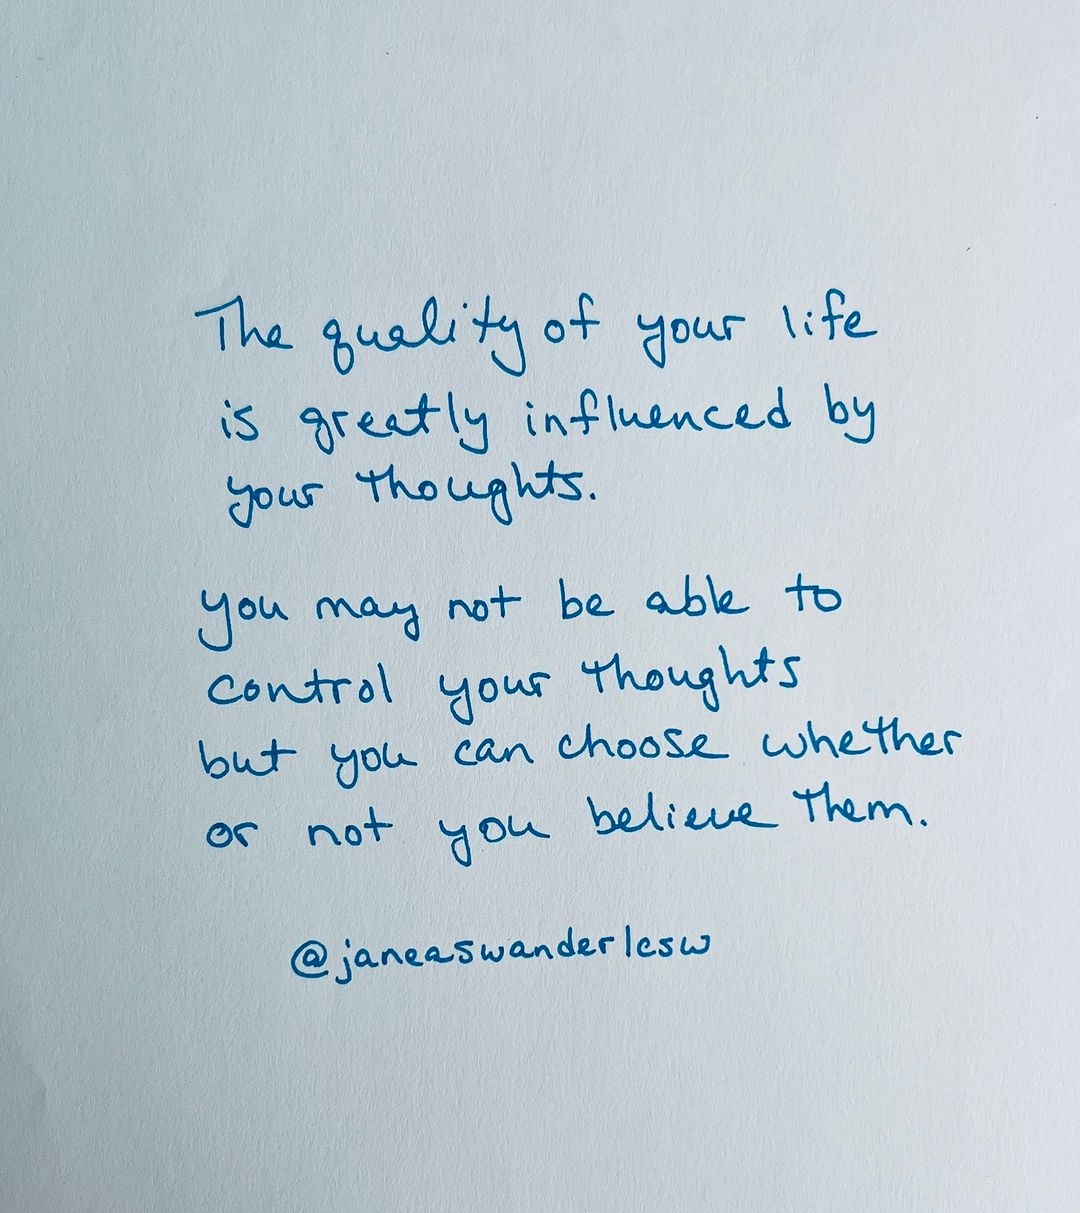 The quality of your life
is greatly influenced by
your thoughts.
you may not be able to
control your thoughts
but you can choose whether
or not you believe them.
@janeaswanderlcsw